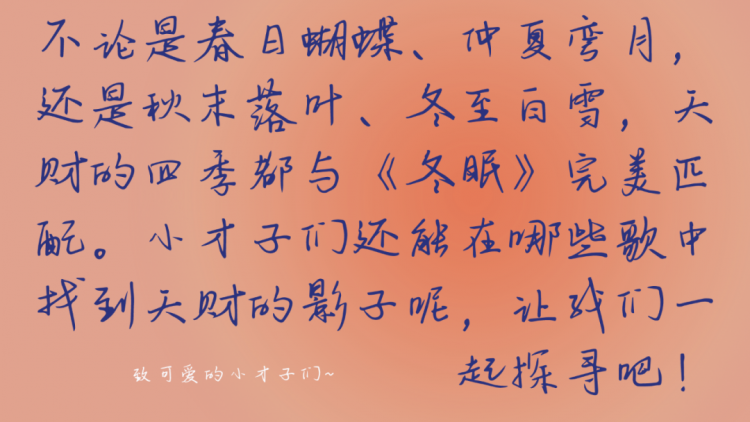 不论是春日蝴蝶、仲夏弯月，
还是秋末落叶、冬至白雪，天
财的四季都与《冬眠》完美匹
配。小才子们还能在哪些歌中
找到天财的影子呢，让我们一
起探寻吧！
致可爱的小才子们~